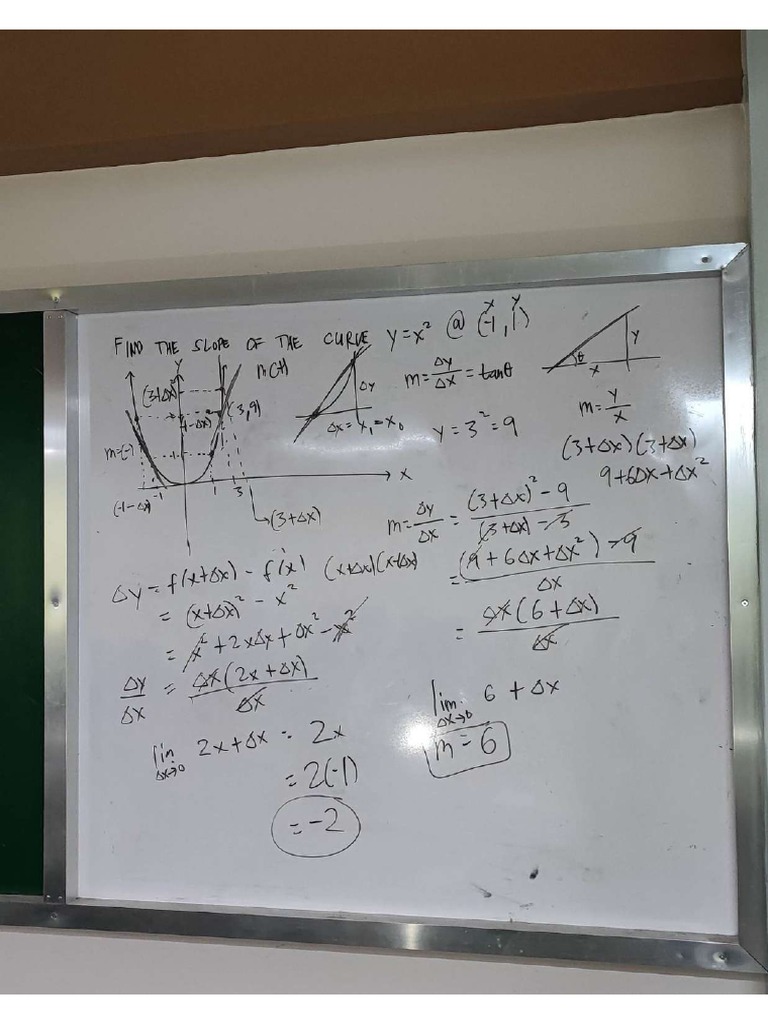 FIND THE SLOPE OF THE CURVE y = x² @ (-1, 1)
x y
y
m(+)
(3+Δx)²
(3,9)
m=(-)
(-1-Δx)
-1
1
3
x
→(3+Δx)
Δy
Δx = x₁ = x₀
m = Δy/Δx = tanθ
y = 3² = 9
θ
x
y
m = y/x
(3+Δx)(3+Δx)
9+6Δx+Δx²
m = Δy/Δx = ((3+Δx)² - 9)/((3+Δx) - 3)
= ((9 + 6Δx + Δx²) - 9)/Δx
= Δx(6+Δx)/Δx
lim Δx→0 6 + Δx
m = 6
Δy = f(x+Δx) - f(x) (x+Δx)(x+Δx)
= (x+Δx)² - x²
= x² + 2xΔx + Δx² - x²
Δy/Δx = Δx(2x+Δx)/Δx
lim Δx→0 2x+Δx = 2x
= 2(-1)
= -2